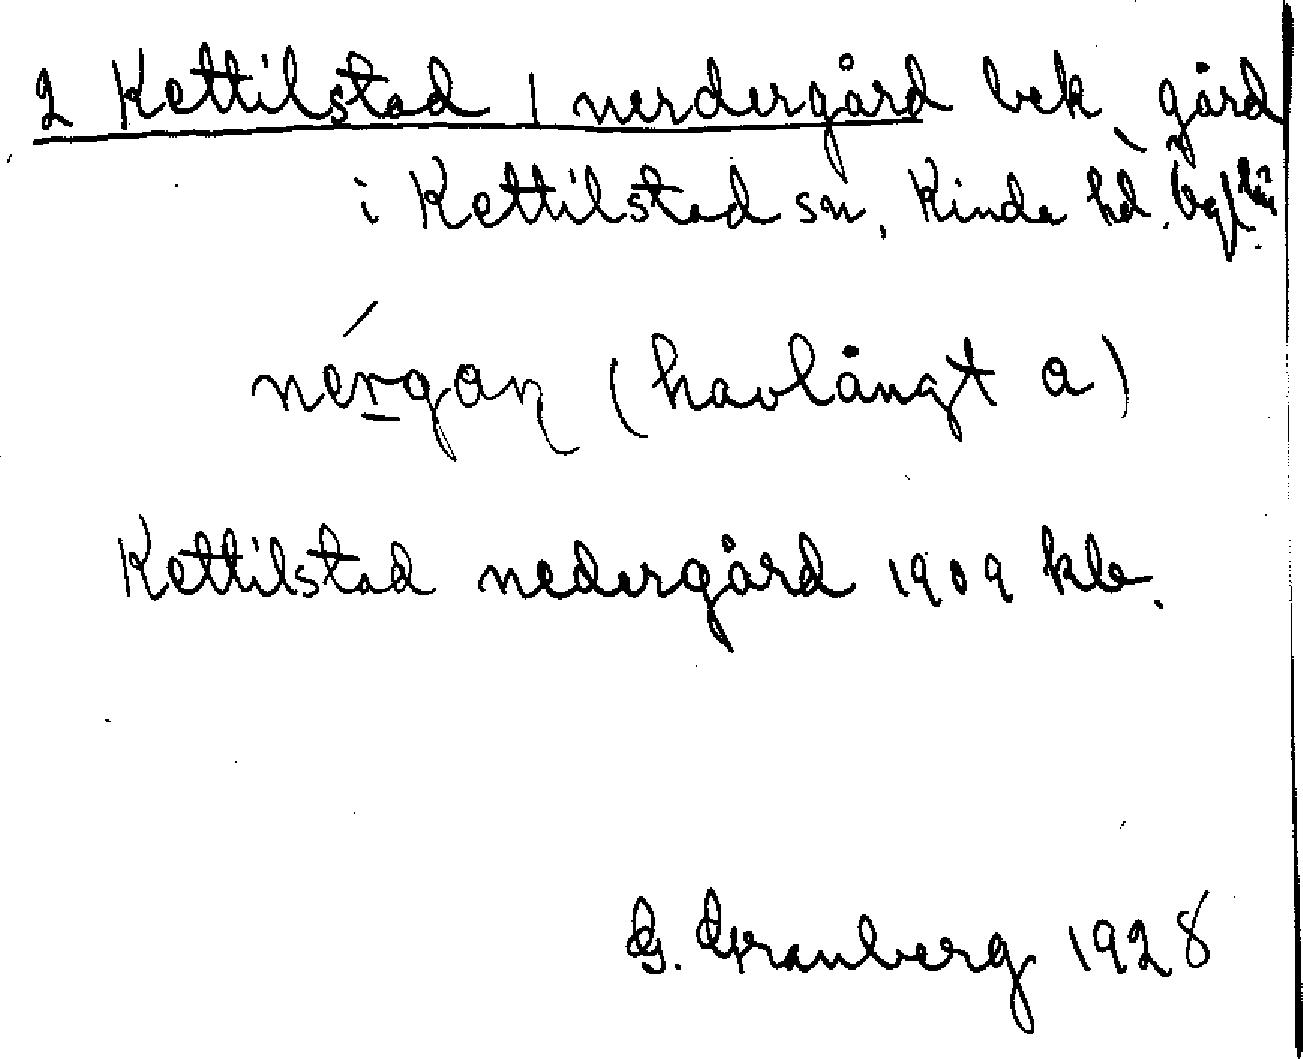 2 Kettilstad | nerdergård bek gård
i Kettilstad sn, Kinda hd. Ögl län
nérgaɳ (havlångt a)
Kettilstad nedergård 1909 kb.
G. Granberg 1928